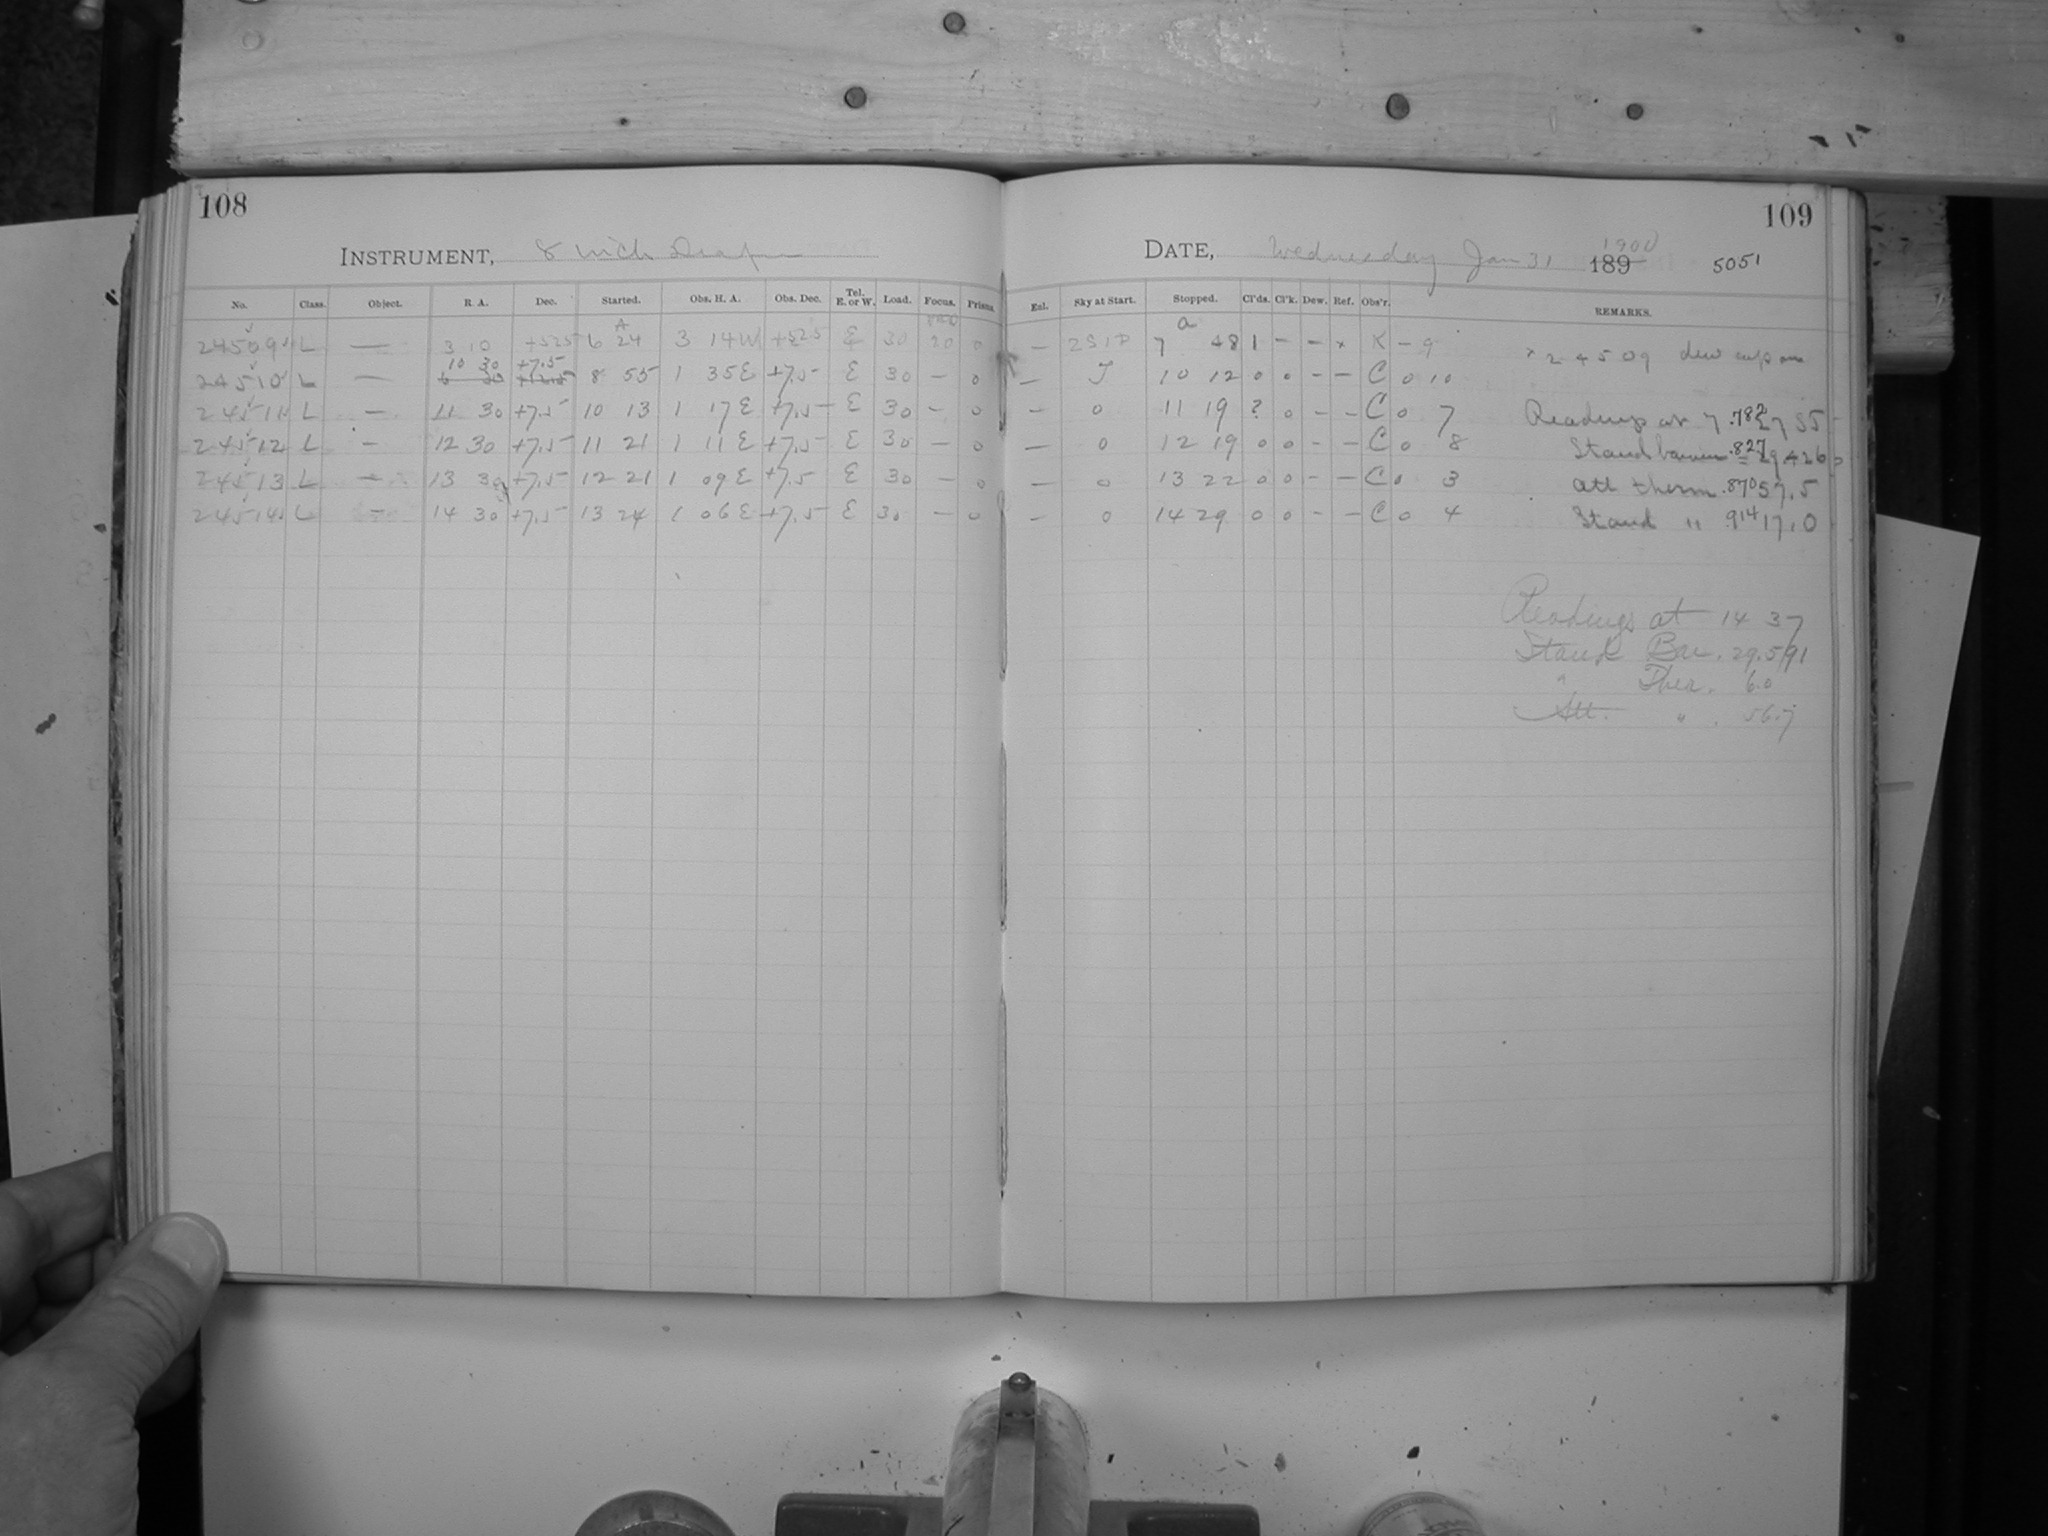 108
INSTRUMENT, 8 inch Draper
No. Class. Object. R. A. Dec. Started. Obs. H. A. Obs. Dec. Tel. E. or W. Load. Focus. Prisms.
24509 L — 3 10 +52.5 6 24 3 14W +52.5 E 30 20 0
10 30 +7.5
24510 L — 8 55 1 35E +7.5 E 30 — 0
24511 L — 11 30 +7.5 10 13 1 17E +7.5 E 30 — 0
24512 L — 12 30 +7.5 11 21 1 11E +7.5 E 30 — 0
24513 L — 13 30 +7.5 12 21 1 09E +7.5 E 30 — 0
24514 L — 14 30 +7.5 13 24 1 06E +7.5 E 30 — 0
109
DATE, Wednesday Jan 31 1900 189 5051
Exl. Sky at Start. Stopped. Cl'ds. Cl'k. Dew. Ref. Obs'r. REMARKS.
— 7 48 1 — — x K — 9 x 24509 dew cap on
— J 10 12 0 0 — — C 0 10
— 0 11 19 ? 0 — — C 0 7 Readings at 7 .782 55
— 0 12 19 0 0 — — C 0 8 Stand barom .827 29.426
— 0 13 22 0 0 — — C 0 3 att therm .870 57.5
— 0 14 29 0 0 — — C 0 4 Stand " .914 17.0
Readings at 14 37
Stand Bar. 29.591
" Ther. 6.0
Att. " . 56.7